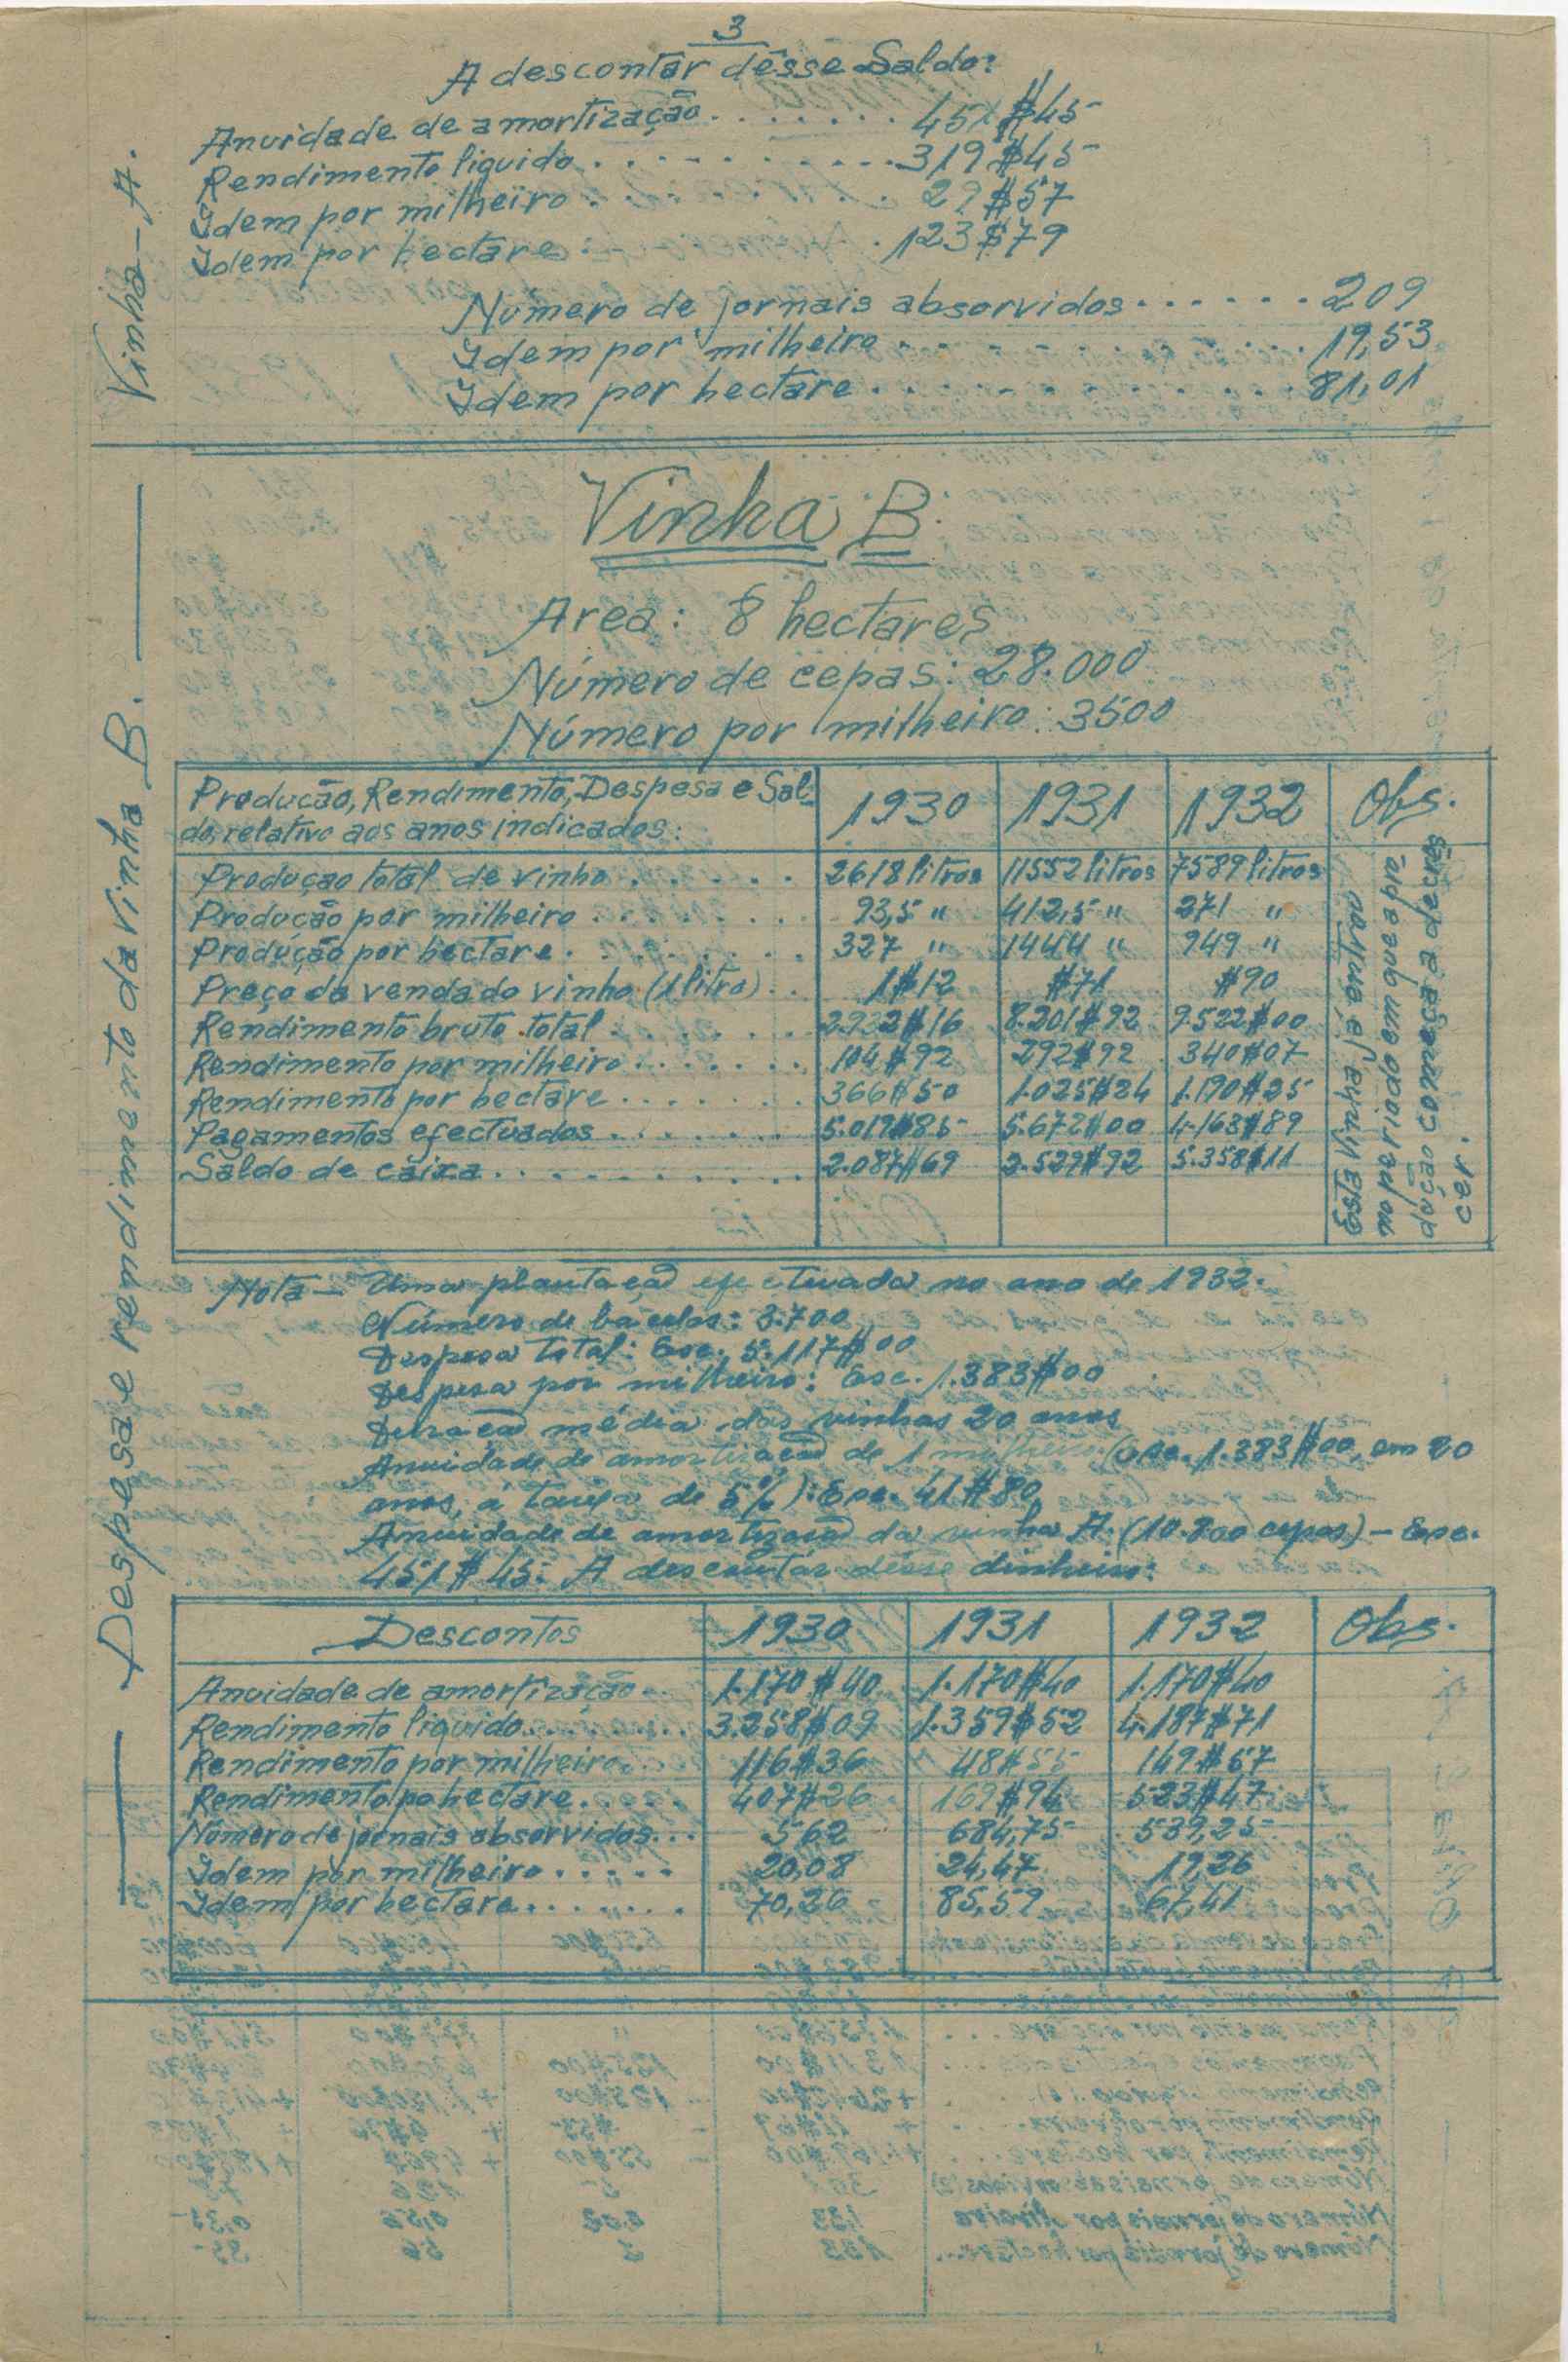 3
A descontar dêsse Saldo:
Anuidade de amortização. . . . . . . . 451$45
Rendimento liquido . . . . . . . . . . . 319$45
Idem por milheiro . . 29$57
Idem por hectare . . 123$79
Número de jornais absorvidos . . . . . . 209
Idem por milheiro . . . . . . . . . . 19,53
Idem por hectare . . . . . . . . . . . 81,01
Vinha - A.
Vinha B
Area: 8 hectares
Número de cepas: 28.000
Número por milheiro: 3500
Despesa e rendimento da Vinha B.
Producão, Rendimento, Despesa e Sal- 1930 1931 1932 Obs.
do, relativo aos anos indicados:
Produçao total de vinho . . . . . . 2618 litros 11552 litros 7589 litros
Producão por milheiro . . . . . . . 93,5 " 412,5 " 271 "
Produção por hectare . . . . . . . . 327 " 1444 " 949 "
Preço da venda do vinho (1 litro) . . 1$12 $71 $90
Rendimento bruto total . . . . . . . 2.932$16 8.201$92 9.522$00
Rendimento por milheiro . . . . . . . 104$92 292$92 340$07
Rendimento por hectare . . . . . . . 366$50 1.025$24 1.190$25
Pagamentos efectuados . . . . . . . 5.019$85 5.672$00 4.163$89
Saldo de caixa . . . . . . . . . . . 2.087$69 2.529$92 5.358$11
Esta vinha já entrou
no periodo em que a da
dução começa a decres
cer.
Nota — Uma plantação efectuada no ano de 1932.
Número de bacelos: 3.700
Despesa total: Esc. 5.117$00
Despesa por milheiro: Esc. 1.383$00
Duração média das vinhas 20 anos
Anuidade de amortização de 1 milheiro (Esc. 1.383$00, em 20
anos, á taxa de 5%): Esc. 41$80
Anuidade de amortização da vinha A. (10.800 cepas) — Esc.
451$45. A descontar dêsse dinheiro:
Descontos 1930 1931 1932 Obs.
Anuidade de amortização . . 1.170$40 1.170$40 1.170$40
Rendimento liquido . . . . . 3.258$09 1.359$52 4.187$71
Rendimento por milheiro . . . 116$36 48$55 149$57
Rendimento po hectare . . . . 407$26 169$94 523$47
Número de jornais absorvidos . . . 562 684,75 539,25
Idem por milheiro . . . . . 20,08 24,47 19,26
Idem por hectare . . . . . . . 70,26 85,59 67,41